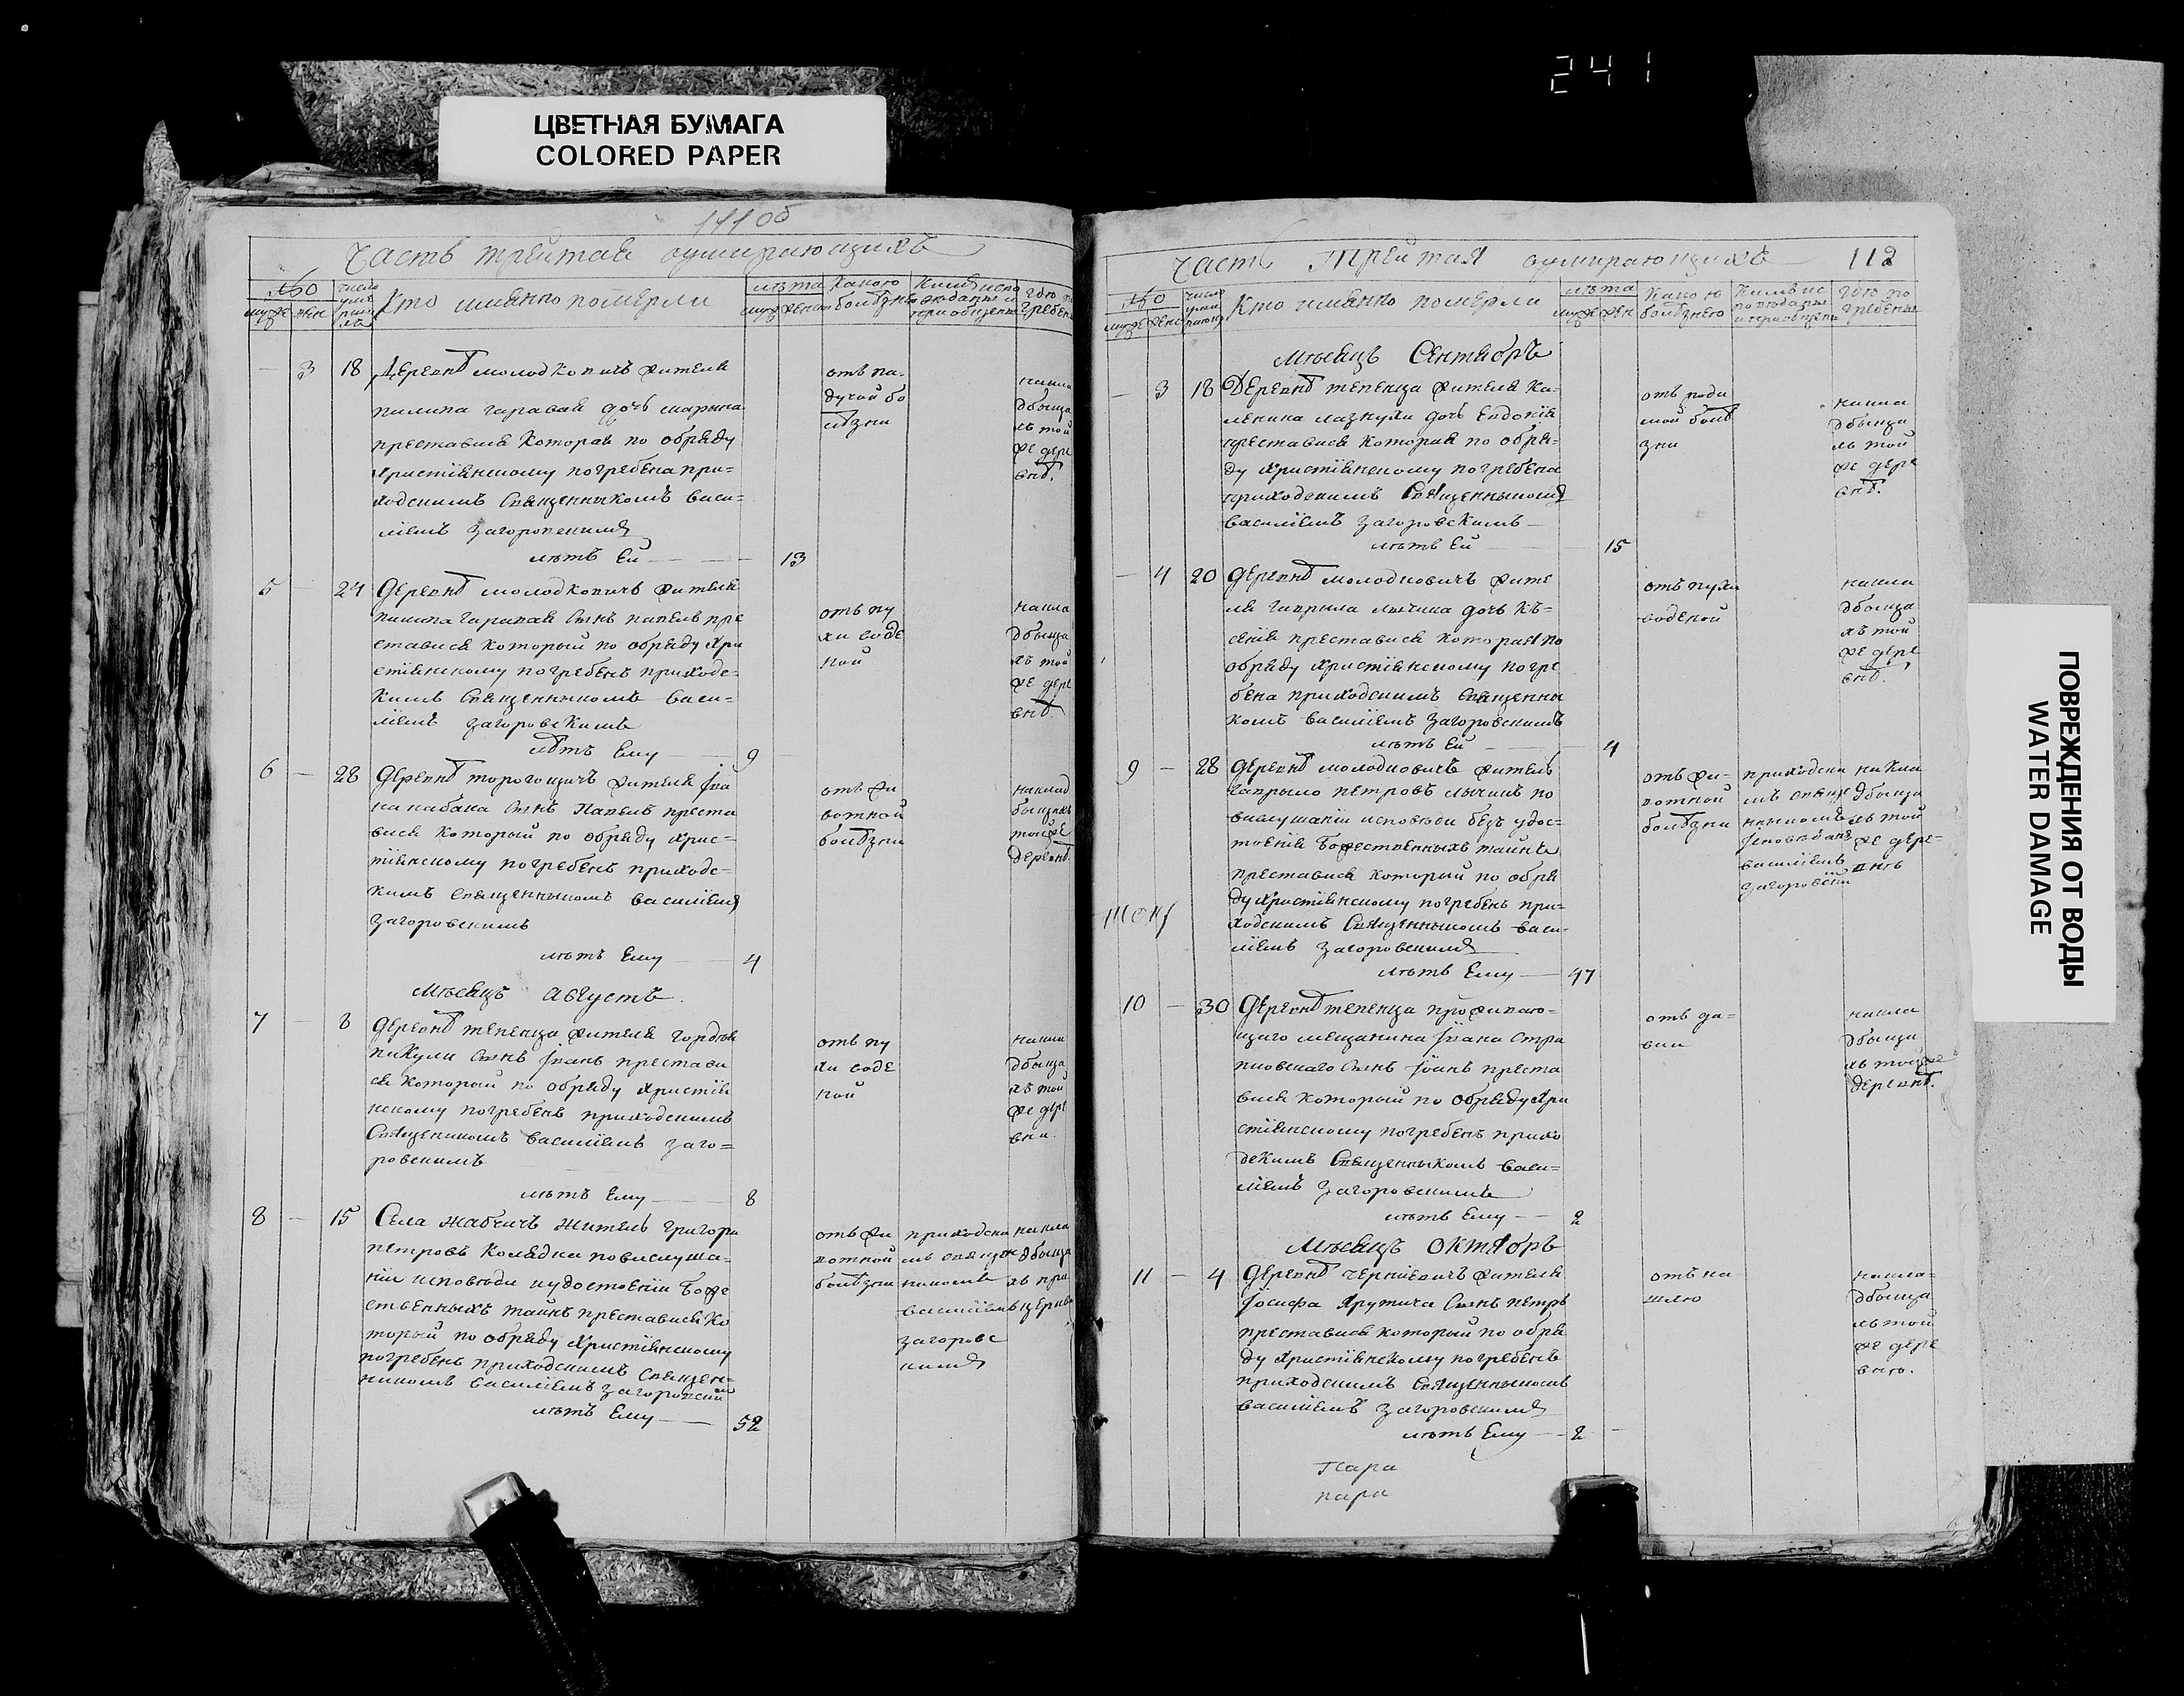 241
ЦВЕТНАЯ БУМАГА
COLORED PAPER
ПОВРЕЖДЕНИЯ ОТ ВОДЫ
WATER DAMAGE
111 об
Часть третая оумирающихъ
№
муж жен
число
Кто именно померли
лѣта
муж жен
Какою
болѣзн
3 18 Деревнѣ молодковичъ жителя
пилипа гаравая дочь марына
преставися Которая по обряду
христіянскому погребена при=
ходскимъ Священныкомъ васи=
ліемъ загоровскимъ
лѣтъ Ей 13
отъ па-
дучой бо
лѣзни
на кла
дбыща
хъ той
же дере
внѣ.
5 24 Деревнѣ молодковичъ жителя
сынъ павелъ пре
ставися который по обряду хри
стіянскому погребенъ приходс=
кимъ Священныкомъ васи=
ліемъ загоровскимъ
лѣтъ Ему 9
отъ пу
хи воде
ной
накла
дбыща
хъ той
же дере
внѣ.
6 28 Деревнѣ торговичъ жителя Іва
на кабака сынъ Павелъ преста
вися который по обряду хрис=
тіянскому погребенъ приходс=
кимъ священныкомъ василіемъ
загоровскимъ
лѣтъ Ему 4
отъ жи
вотной
болѣзни
наклад
быщахъ
той же
деревнѣ.
Мѣсяцъ августъ.
7 8 Деревнѣ тепенца жителя гордѣя
пикули сынъ Іванъ престави
ся который по обряду христія
нскому погребенъ приходскимъ
Священикомъ василіемъ заго=
ровскимъ
лѣтъ Ему 8
отъ пу
хи воде
ной
накла
дбыща
хъ той
же дере
вни.
8 15 Села жабчичъ житель григори
петровъ Колядка повислуша-
ніи исповѣди иудостоеніи боже
ственныхъ тайнъ преставися Ко
торый по обряду христіянскому
погребенъ приходскимъ Священ=
никомъ василіемъ загоровским
лѣтъ Ему 52
отъ жи
вотной
болѣзни
приходски
мъ священ
никомъ
василіемъ
загоровс
кимъ
накла
дбыща
хъ при
церкви
Часть Третая оумирающихъ 112
№
муж жен
число
Кто именно померли
лѣта
муж жен
Какою
болѣзнею
гдѣ по
гребены
Мѣсяцъ Сентябръ
3 18 Деревнѣ тепенца жителя ка-
леника лазкули дочъ Евдокія
преставися Которая по обря=
ду христіянскому погребена
приходскимъ Священныкомъ
василіемъ загоровскимъ
лѣтъ Ей 15
отъ роди
мой болѣ
зни
накла
дбыща
хъ той
же дере
внѣ.
4 20 Деревнѣ молодковичъ жите
ля гаврыла лычика дочъ Кѣ=
сенія преставися которая по
обряду христіянскому погре
бена приходскимъ священны
комъ василіемъ загоровскимъ
лѣтъ Ей 4
отъ пухи
воденой
накла
дбыща
хъ той
же дере
внѣ.
9 28 Деревнѣ молодковичъ житель
гаврыло петровъ лычикъ по
вислушаніи исповѣди безъ удос=
тоенія Божественныхъ тайнъ
преставися который по обря
ду христіянскому погребенъ при=
ходскимъ Священныкомъ васи-
ліемъ загоровскимъ
лѣтъ Ему 47
отъ жи-
вотной
болѣзни
приходски
мъ священ
ныкомъ
василіемъ
загоровски
на кла
дбыща
хъ той
же дере-
внѣ
10 30 Деревнѣ тепенца проживаю-
щаго мещанина Івана Стра
сынъ Іоанъ преста
вися который по обряду хри
стіянскому погребенъ прихо
дскимъ Священныкомъ васи-
ліемъ загоровскимъ
лѣтъ Ему 2
отъ да=
вки
накла
дбыща
хъ той же
деревнѣ.
Мѣсяцъ Октябръ
11 4 Деревнѣ жителя
Іосифа Хрутича сынъ петръ
преставися который по обря
ду христіянскому погребенъ
приходскимъ Священныкомъ
василіемъ загоровскимъ
лѣтъ Ему 2
отъ ка
шлю
накла=
дбыща
хъ той
же дере
вню.